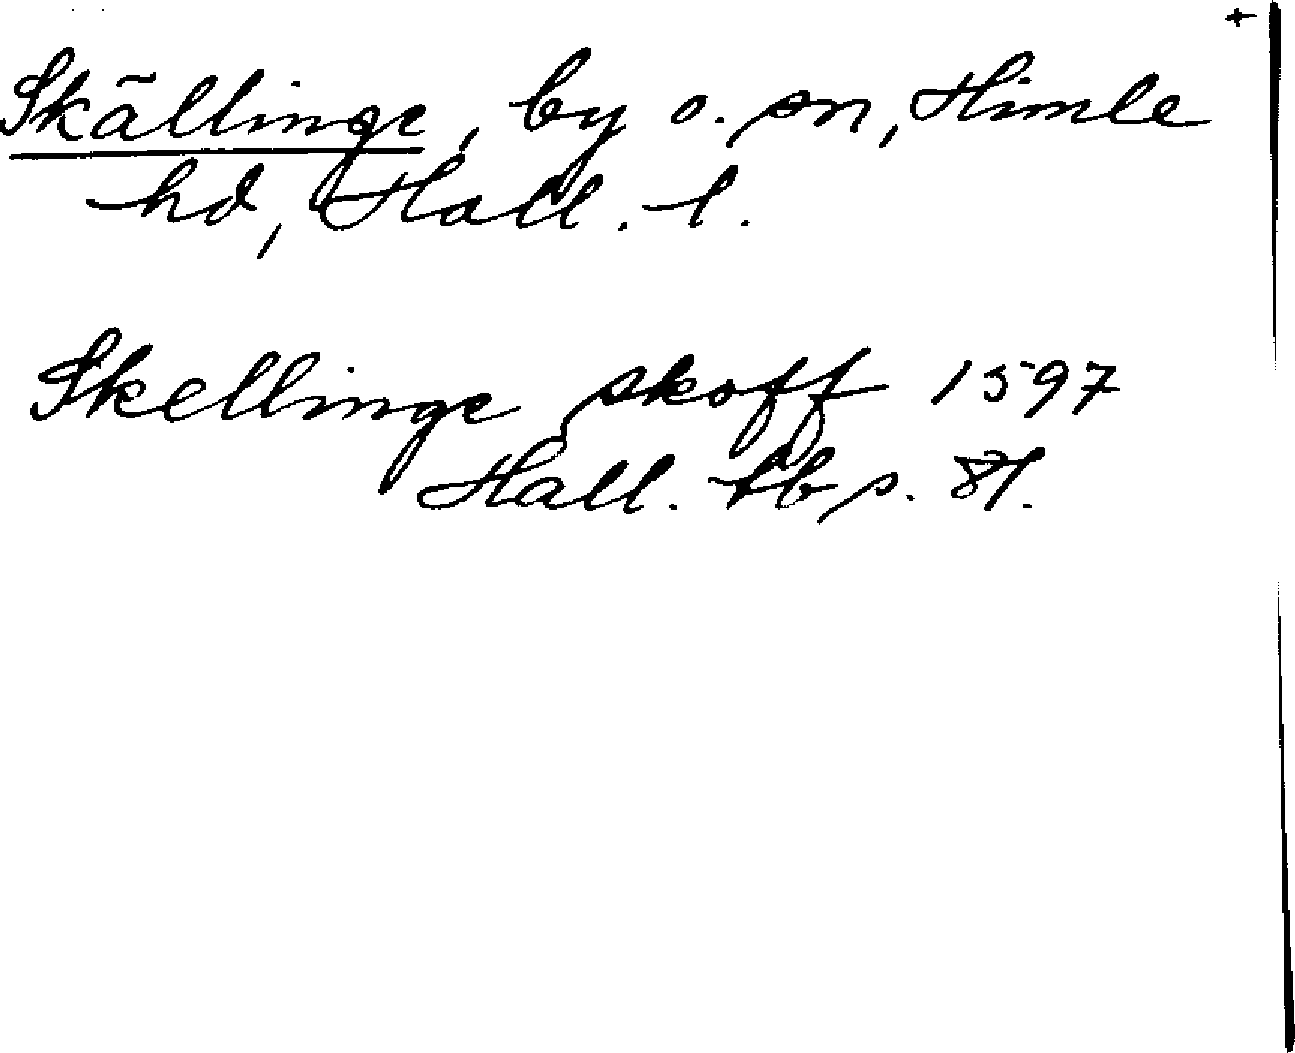 +
Skällinge, by o. sn, Himle
hd, Hall. l.
Skellinge skoff 1597
Hall. tb s. 81.